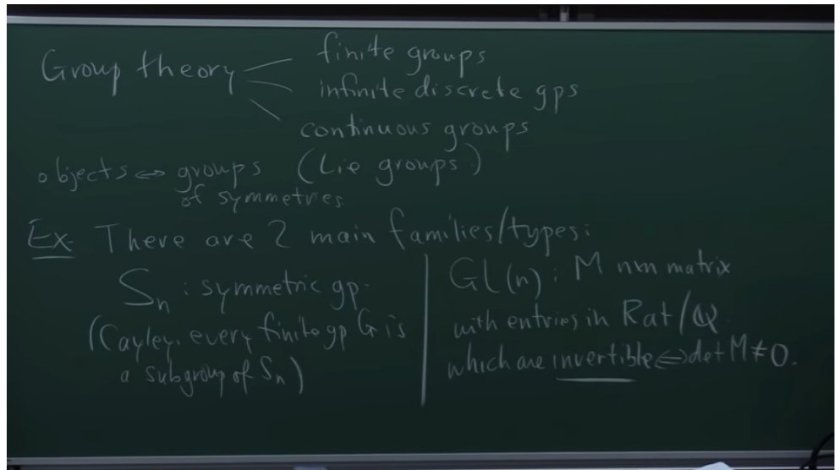 Group theory
finite groups
infinite discrete gps
continuous groups
(Lie groups)
objects ↔ groups
of symmetries
Ex. There are 2 main families/types:
Sn : symmetric gp.
(Cayley. every finite gp G is
a subgroup of Sn)
GL(n) : M nxn matrix
with entries in Rat/ℚ
which are invertible ⇔ det M ≠ 0.